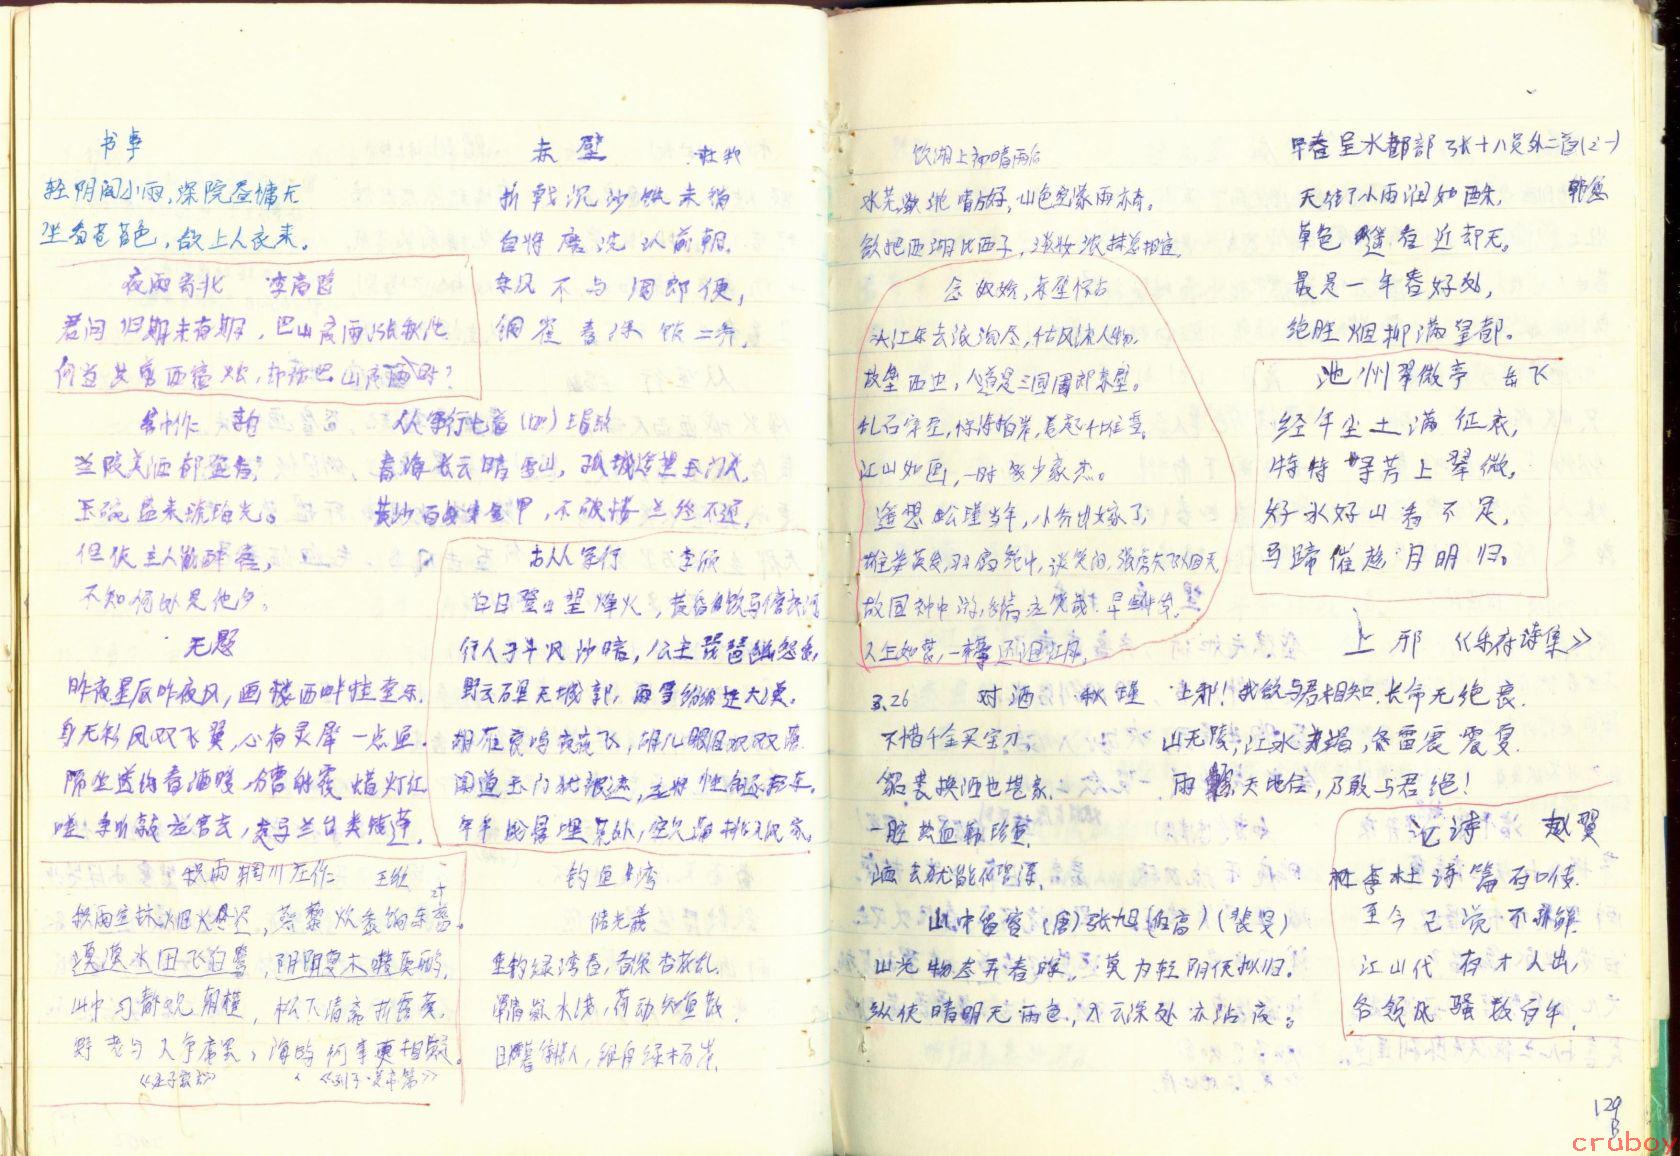 书事
轻阴阁小雨,深院昼慵无
坐看苍苔色,欲上人衣来。
夜雨寄北 李商隐
君问归期未有期,巴山夜雨涨秋池
何当共剪西窗烛,却话巴山夜雨时?
客中作 李白
兰陵美酒郁金香,
玉碗盛来琥珀光。
但使主人能醉客,
不知何处是他乡。
无题
昨夜星辰昨夜风,画楼西畔桂堂东.
身无彩凤双飞翼,心有灵犀一点通.
隔坐送钩春酒暖 分曹射覆 蜡灯红
嗟余听鼓应官去,走马兰台类转蓬.
积雨辋川庄作 王维
积雨空林烟火迟,蒸藜炊黍饷东菑。
漠漠水田飞白鹭,阴阴夏木啭黄鹂,
山中习静观朝槿,松下清斋折露葵,
野老与人争席罢,海鸥何事更相疑。
赤壁 杜牧
折戟沉沙铁未销
自将磨洗认前朝.
东风不与周郎便,
铜雀春深锁二乔.
从军行七首(四) 王昌龄
青海长云暗雪山,孤城遥望玉门关,
黄沙百战穿金甲,不破楼兰终不还,
古从军行 李颀
白日登山望烽火,黄昏饮马傍交河
行人刁斗风沙暗,公主琵琶幽怨多,
野云万里无城郭,雨雪纷纷连大漠.
胡雁哀鸣夜夜飞,胡儿眼泪双双落
闻道玉门犹被遮,应将性命逐轻车.
年年战骨埋荒外,空见蒲桃入汉家。
钓鱼湾
储光羲
垂钓绿湾春,春深杏花乱.
潭清疑水浅,荷动知鱼散.
日暮待情人,维舟绿杨岸.
饮湖上初晴雨后
水光潋滟晴方好,山色空蒙雨亦奇。
欲把西湖比西子,淡妆浓抹总相宜.
念奴娇,赤壁怀古
大江东去浪淘尽,千古风流人物.
故垒西边,人道是三国周郎赤壁。
乱石穿空,惊涛拍岸,卷起千堆雪。
江山如画,一时多少豪杰。
遥想公瑾当年,小乔出嫁了,
雄姿英发,羽扇纶巾,谈笑间,强虏灰飞烟灭
故国神游,多情应笑我 早生华发.
人生如梦,一樽还酹江月.
3.26 对酒 秋瑾
不惜千金买宝刀,
貂裘换酒也堪豪.
一腔热血勤珍重,
洒去犹能化碧涛.
山中留客(唐)张旭(伯高)(裴旻)
山光物态弄春晖,莫为轻阴便拟归.
纵使晴明无雨色,入云深处亦沾衣。
早春呈水部 张十八员外二首(之一)
韩愈
天街小雨润如酥,
草色遥看近却无。
最是一年春好处,
绝胜烟柳满皇都。
池州翠微亭 岳飞
经年尘土满征衣,
特特寻芳上翠微。
好水好山看不足,
马蹄催趁月明归。
上邪 《乐府诗集》
上邪!我欲与君相知.长命无绝衰.
山无陵,江水为竭,冬雷震震夏
雨雪 天地合,乃敢与君绝!
论诗 赵翼
李杜诗篇万口传.
至今已觉不新鲜.
江山代有才人出,
各领风骚数百年.
129
cruboy